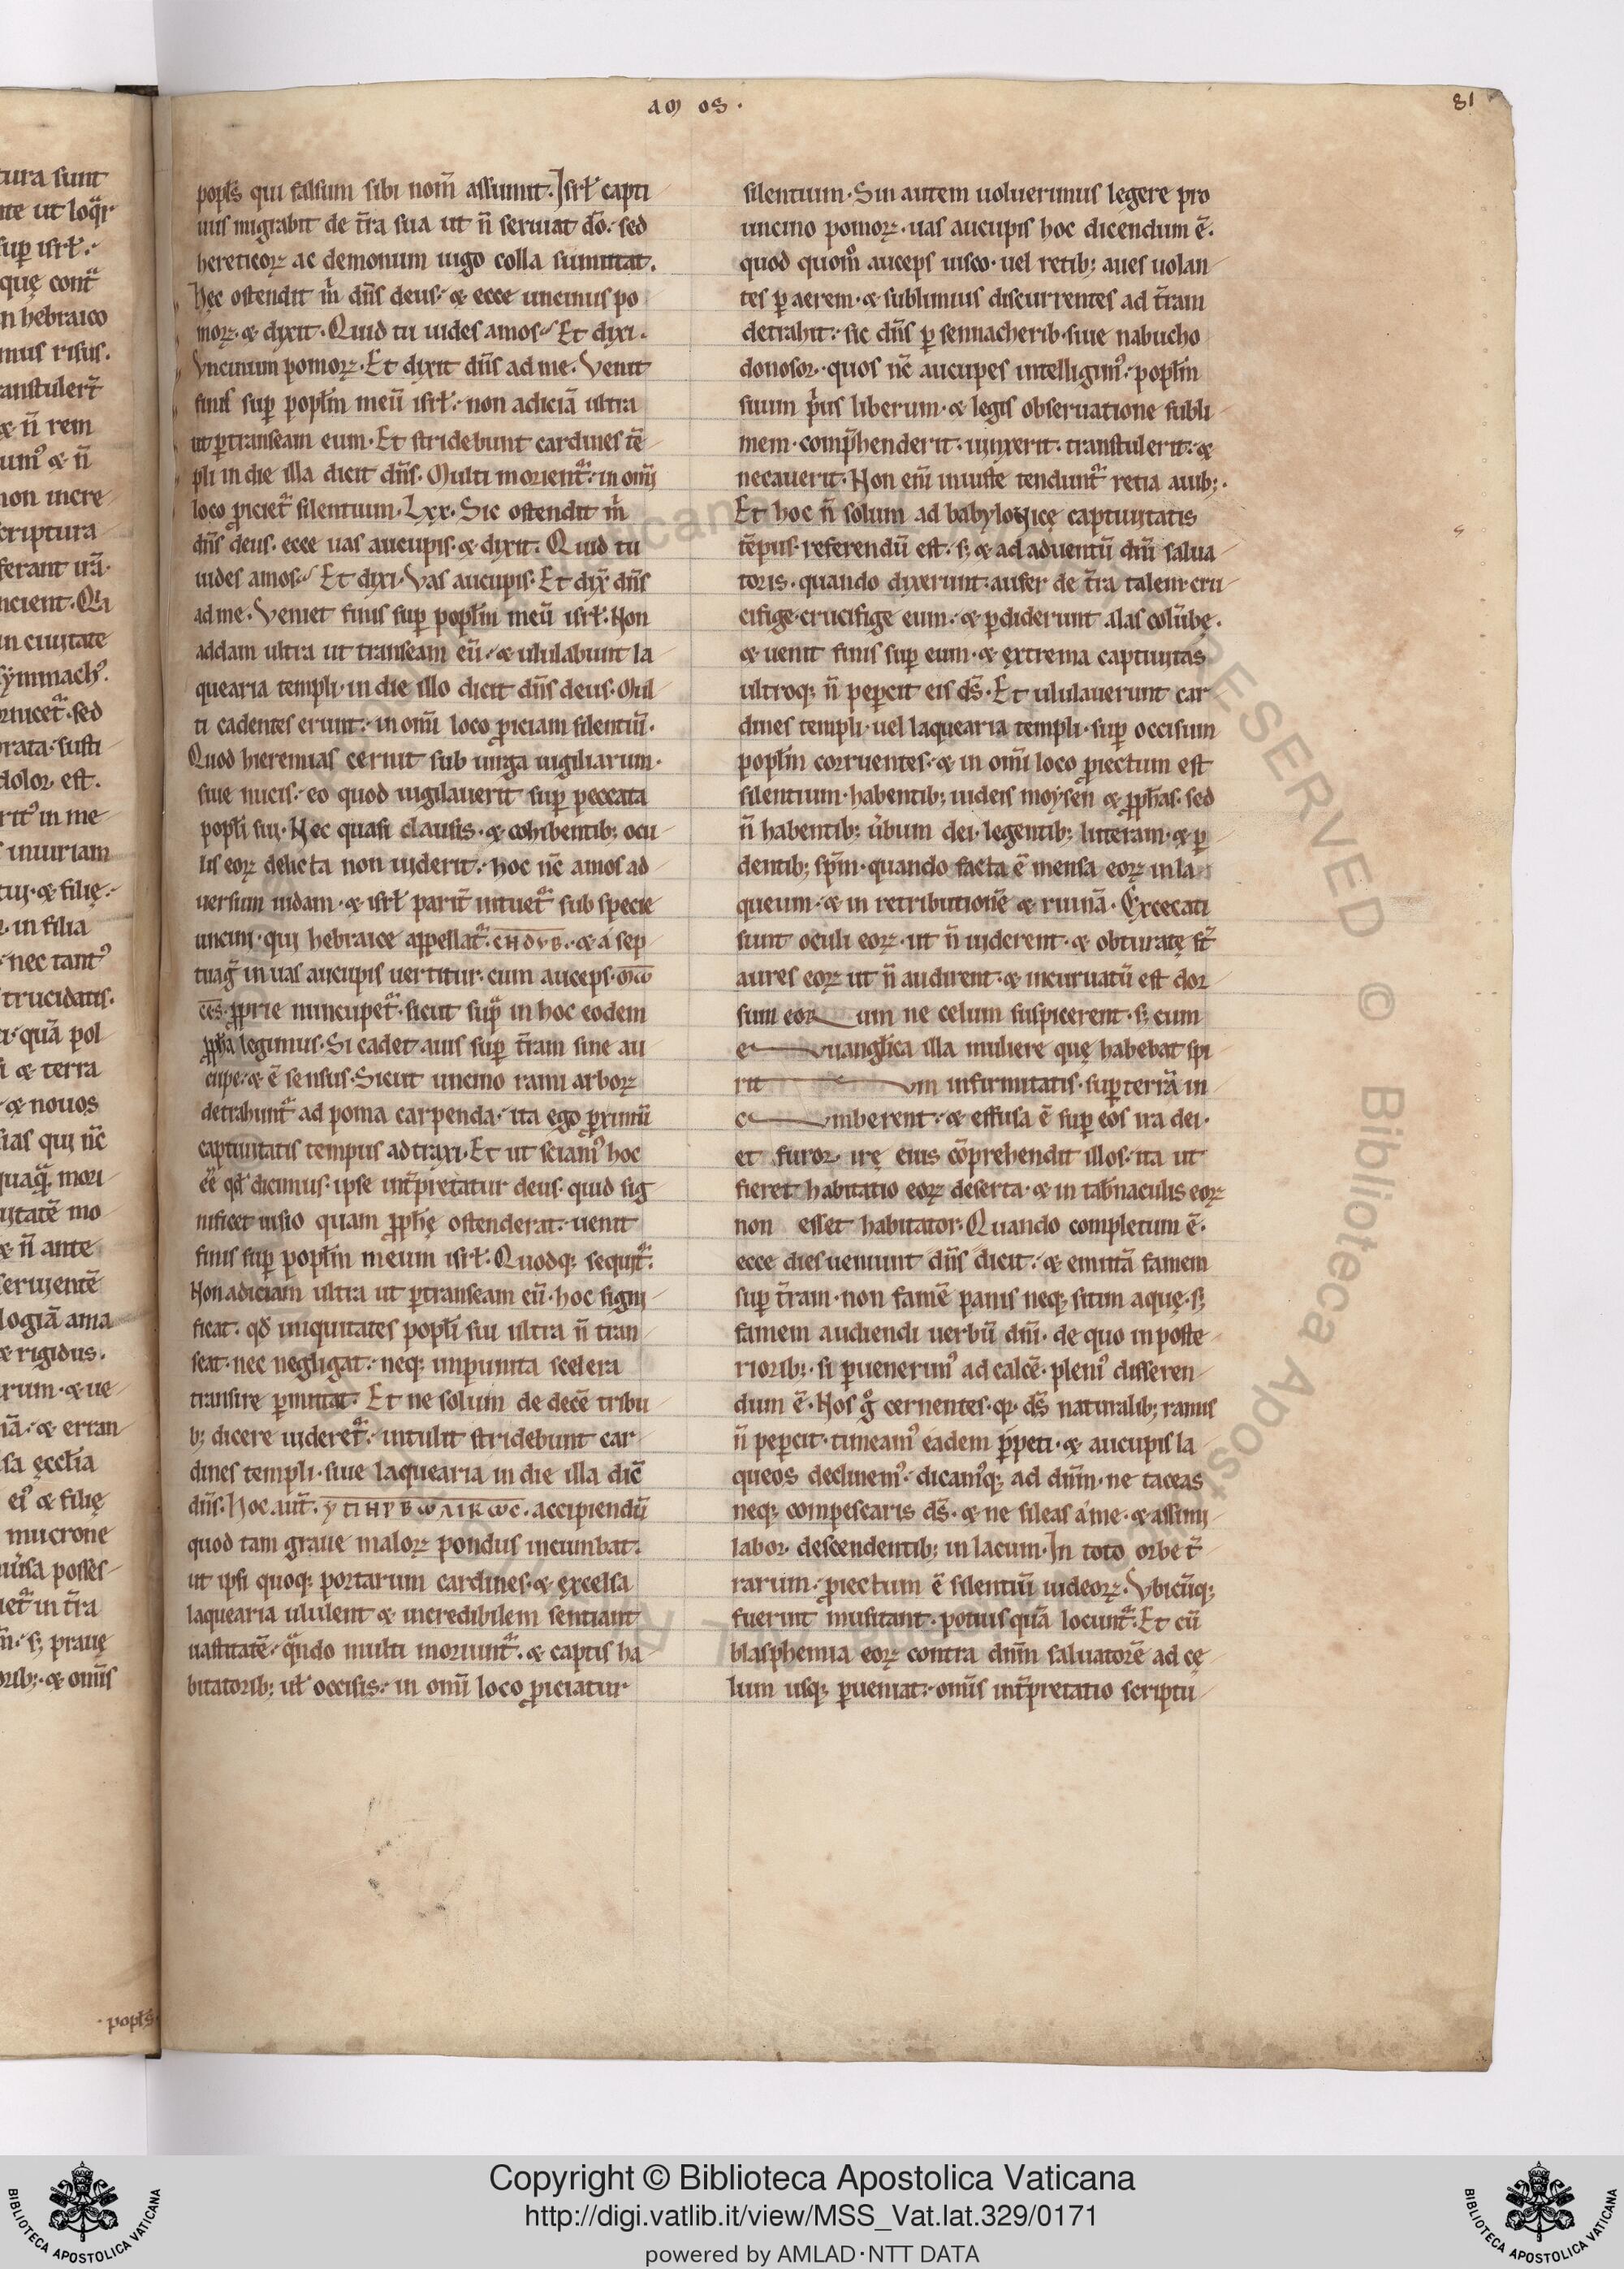 AM OS ·
81
popl's qui falsum sibi nom̄ assumit. Isrl̄ capti
uus migrabit de t̄ra sua ut n̄ seruiat dō. sed
hereticoꝝ ac demonum iugo colla summittat.
Hęc ostendit m̄ dn̄s deus. & ecce uncinus po
moꝝ. & dixit. Quid tu uides amos. Et dixi.
Vncinum pomoꝝ. Et dixit dn̄s ad me. Venit
finis sup̄ popl̄m meū isrl̄. non adiciā ultra
ut ꝑtranseam eum. Et stridebunt cardines tē
pli in die illa dicit dn̄s. Multi morient̄. in om̄i
loco ꝓiciet̄ silentium. Lxx. Sic ostendit m̄
dn̄s deus. ecce uas aucupis. & dixit. Quid tu
uides amos. Et dixi. Vas aucupis. Et dix̄ dn̄s
ad me. Veniet finis sup̄ popl̄m meū isrl̄. Non
addam ultra ut transeam eū. & ululabunt la
quearia templi. in die illo dicit dn̄s deus. Mul
ti cadentes erunt. in om̄i loco ꝓiciam silentiū.
Quod hieremias cernit sub uirga uigiliarum.
siue nucis. eo quod uigilauerit sup̄ peccata
popl̄i sui. Nec quasi clausis. & cohibentib; ocu
lis eoꝝ delicta non uiderit. hoc nc̄ amos ad
uersum iudam. & isrl̄ parit̄ intuet̄ sub specie
uncini. qui hebraice appellat̄. & a sep
tuaḡ in uas aucupis uertitur. cum auceps.
ꝓprie nuncupet̄. sicut sup̄ in hoc eodem
ꝓph̄a legimus. Si cadet auis sup̄ t̄ram sine au
cupe. & ē sensus. Sicut uncino rami arboꝝ
detrahunt̄ ad poma carpenda. ita ego ꝓximū
captiuitatis tempus adtraxi. Et ut sciam' hoc
ēē qd̄ dicimus. ipse int̄pretatur deus. quid sig
nificet uisio quam ꝓph̄ę ostenderat. uenit
finis sup̄ popl̄m meum isrl̄. Quodq; sequit̄.
Non adiciam ultra ut ꝑtranseam eū. hoc signi
ficat. qd̄ iniquitates popl̄i sui ultra n̄ tran
seat. nec negligat. neq; impunita scelera
transire ꝑmittat. Et ne solum de decē tribu
b; dicere uideret̄. intulit stridebunt car
dines templi. siue laquearia in die illa dic̄
dn̄s. Hoc aut̄. accipiendū
quod tam graue maloꝝ pondus incumbat.
ut ipsi quoq; portarum cardines. & excelsa
laquearia ululent & incredibilem sentiant
uastitatē. qn̄do multi moriunt̄. & captis ha
bitatorib; ul̄ occisis. in om̄i loco ꝓiciatur
silentium. Sin autem uoluerimus legere pro
uncino pomoꝝ. uas aucupis hoc dicendum ē.
quod quom̄ auceps uisco. uel retib; aues uolan
tes ꝑ aerem. & sublimius discurrentes ad t̄ram
detrahit. sic dn̄s ꝑ sennacherib. siue nabucho
donosor. quos nc̄ aucupes intelligim'. popl̄m
suum p̄us liberum. & legis obseruatione subli
mem. comp̄henderit. uinxerit. transtulerit. &
necauerit. Non eni iniuste tendunt̄ retia auib;.
Et hoc n̄ solum ad babylonicę captiuitatis
tēpus. referendū est. s; & ad aduentū dn̄i salua
toris. quando dixerunt. aufer de t̄ra talem. cru
cifige. crucifige eum. & ꝑdiderunt alas colūbę.
& uenit finis sup̄ eum. & extrema captiuitas
ultroq; n̄ peꝑcit eis ds̄. Et ululauerunt car
dines templi. uel laquearia templi. sup̄ occisum
popl̄m corruentes. & in om̄i loco ꝓiectum est
silentium. habentib; iudeis moysen & ꝓph̄as. sed
n̄ habentib; u̇bum dei. legentib; litteram. & ꝑ
dentib; sp̄m. quando facta ē mensa eoꝝ in la
queum. & in retributionē & ruinā. Excecati
sunt oculi eoꝝ. ut n̄ uiderent. & obturatę st̄
aures eoꝝ ut n̄ audirent. & incuruatū est dor
sum eor um ne celum suspicerent. s; cum
e uangl̄ica illa muliere quę habebat spi
rit um infirmitatis. sup̄ terrā in
c umberent. & effusa ē sup̄ eos ira dei.
et furor irę eius cōprehendit illos. ita ut
fieret habitatio eoꝝ deserta. & in tab̄naculis eoꝝ
non esset habitator. Quando completum ē.
ecce dies ueniunt dn̄s dicit. & emittā famem
sup̄ t̄ram. non famē panis neq; sitim aquę. s;
famem audiendi uerbū dn̄i. de quo in poste
riorib;. si ꝑuenerim' ad calcē. pleni' differen
dum ē. Nos g̊ cernentes. qꝫ ds̄ naturalib; ramis
n̄ peꝑcit. timeam' eadem p̄peti. & aucupis la
queos declinem'. dicam'q; ad dn̄m. ne taceas
neq; compescaris ds̄. & ne sileas a me. & assimi
labor descendentib; in lacum. In toto orbe t̄
rarum. ꝓiectum ē silentiū iudeoꝝ. Vbicūq;
fuerint musitant. potius quā locunt̄. Et cū
blasphemia eoꝝ contra dn̄m saluatorē ad cę
lum usq; ꝑueniat. om̄is int̄pretatio scriptu
popl's
Copyright © Biblioteca Apostolica Vaticana
http://digi.vatlib.it/view/MSS_Vat.lat.329/0171
powered by AMLAD·NTT DATA
BIBLIOTECA APOSTOLICA VATICANA
BIBLIOTECA APOSTOLICA VATICANA